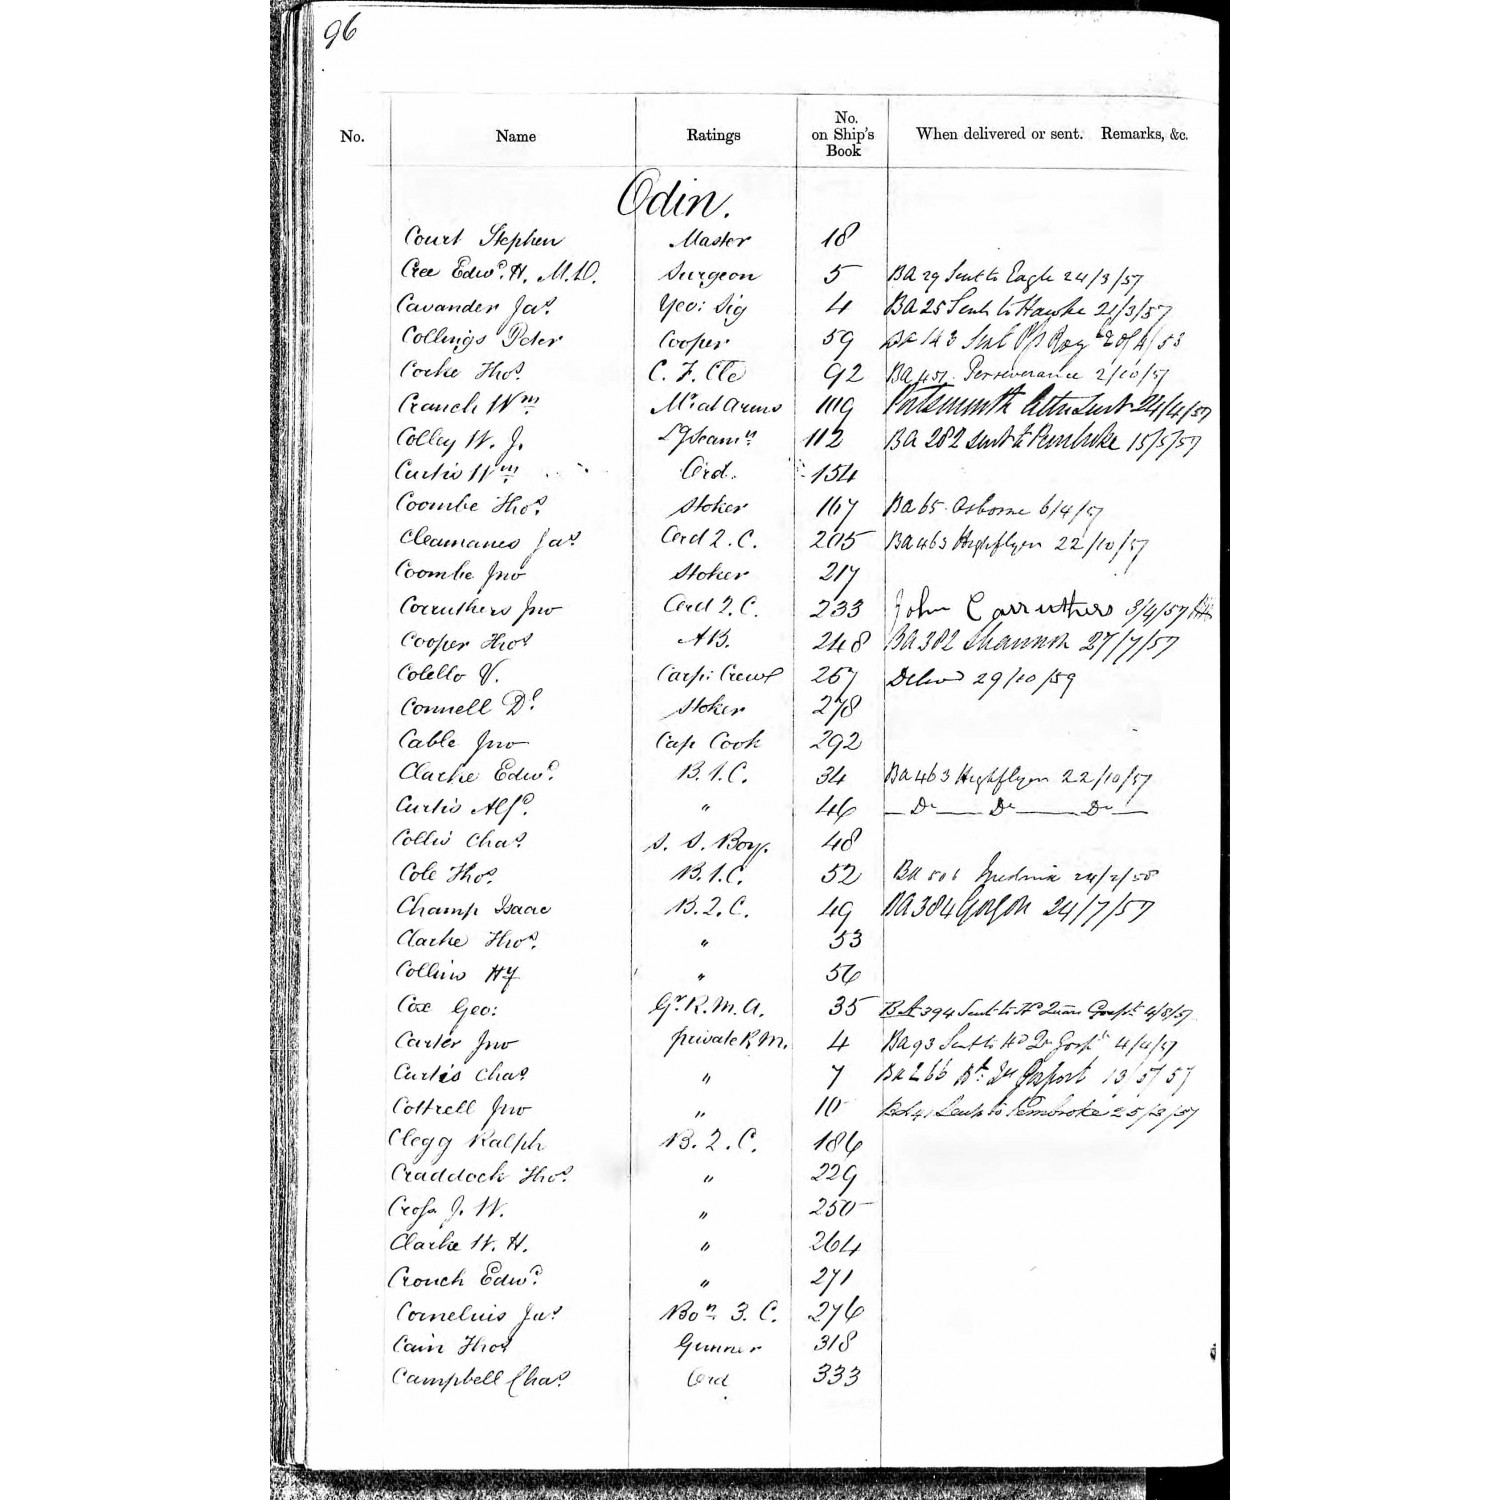 96
No. Name Ratings No. on Ship's Book When delivered or sent. Remarks, &c.
Odin.
Court Stephen Master 18
Cree Edwd. H. M.D. Surgeon 5 BA 29 Sent to Eagle 24/3/57
Cavander Jas. Yeo: Sig 4 BA 25 Sent to Hawke 21/3/57
Collings Peter Cooper 59 Sent
Cocke Thos. C. F. Cle 92 BA 451 Perseverance 2/10/57
Crauch Wm. Mr. at Arms 119 Portsmouth 24/4/57
Colley W. J. Lg Seamn 112 BA 282 sent to Pembroke 15/5/57
Curtis Wm Ord. 154
Coombe Thos. Stoker 167 BA 65 Osborne 6/4/57
Cleamanes Jas. Ord 2. C. 205 BA 463 Highflyer 22/10/57
Coombe Jno Stoker 217
Corruthers Jno Ord 2. C. 233 John Carruthers 3/4/57
Cooper Thos AB. 248 BA 382 Shannon 27/7/57
Colello V. Carp: Crew 267 Delivd 29/10/59
Connell Dl. Stoker 278
Cable Jno Cap Cook 292
Clarke Edwd. B. 1. C. 34 BA 463 Highflyer 22/10/57
Curtis Alfd. " 46 — Do — Do — Do —
Collis Chas. S. S. Boy. 48
Cole Thos. B. 1. C. 52 24/2/58
Champ Isaac B. 2. C. 49 BA 384 Gorgon 24/7/57
Clarke Thos. " 53
Collins Hy " 56
Cox Geo: Gr. R. M. A. 35 BA 394 Sent to Hd Quars Gospt. 4/8/57
Carter Jno private R.M. 4 BA 93 Sent to Hd Qr Gospt 4/4/57
Curtis Chas " 7 BA 266 Gosport 13/5/57
Cottrell Jno " 10 Sent to Pembroke 25/3/57
Clegg Ralph B. 2. C. 186
Craddock Thos. " 229
Cross J. W. " 250
Clarke W. H. " 264
Crouch Edwd. " 271
Cornelius Jas Bon. 3. C. 276
Cain Thos Gunner 318
Campbell Chas. Ord 333